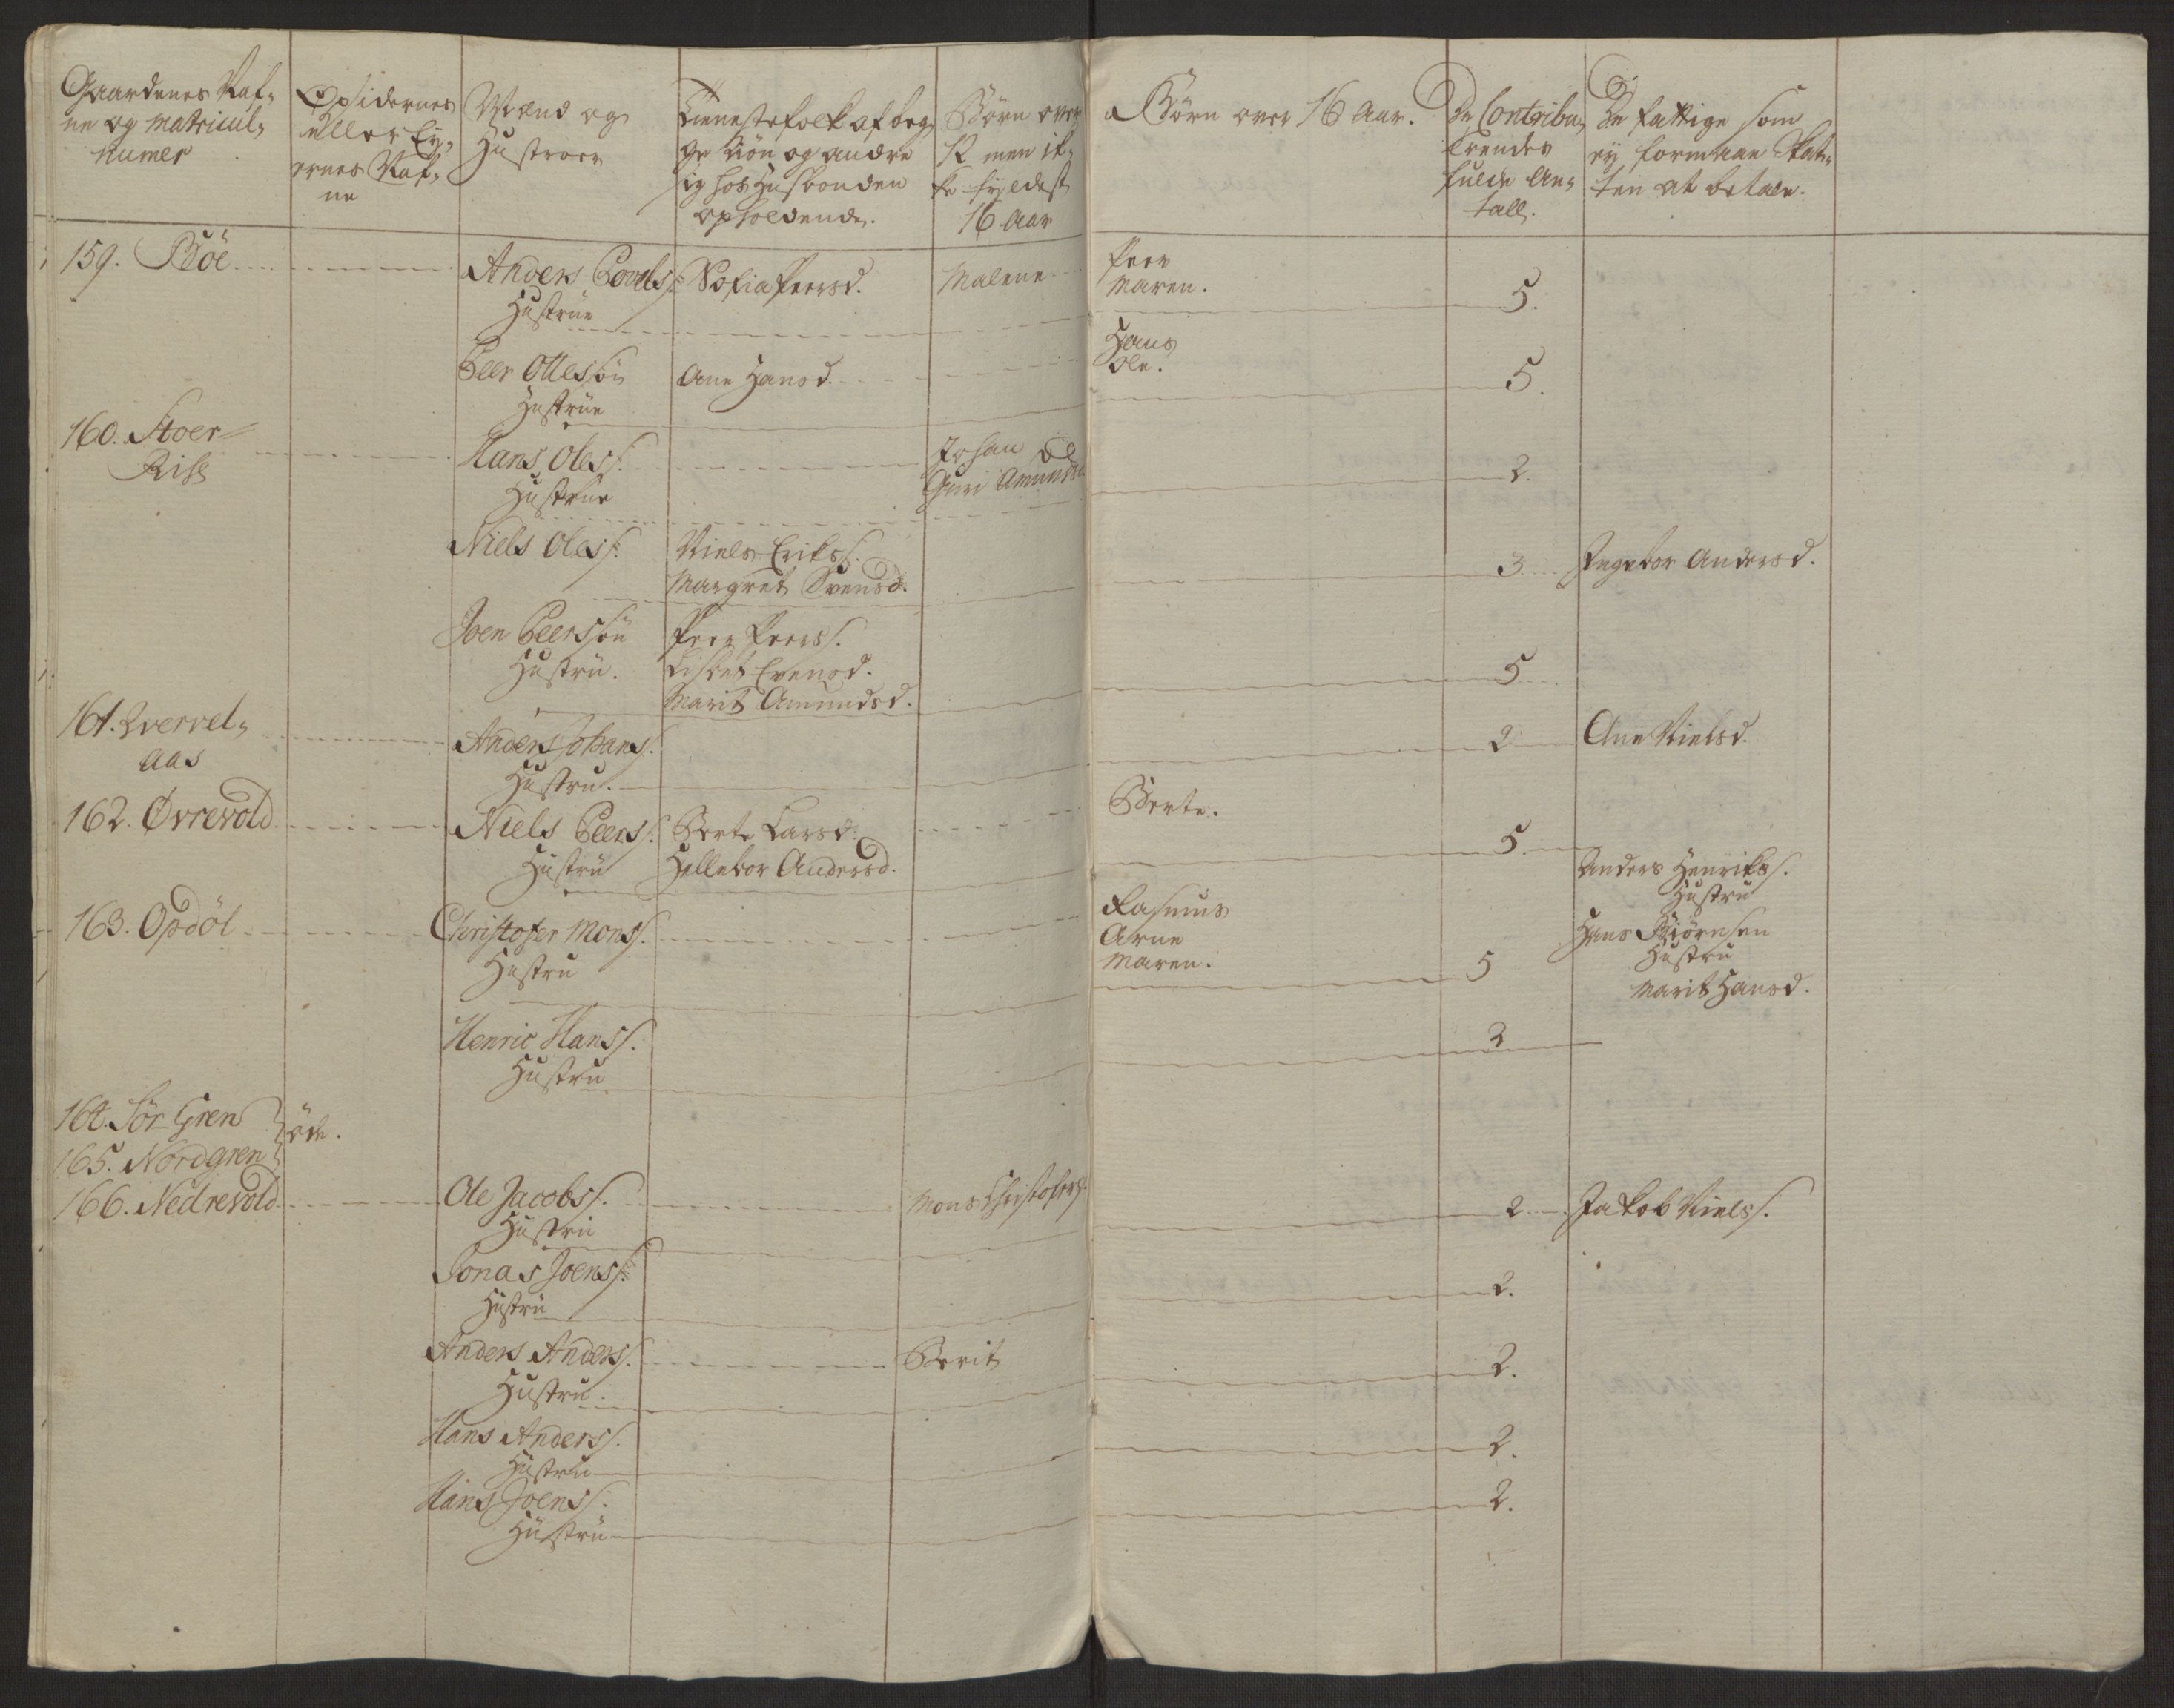 Gaardenes Naf-
ne og Matricul-
numer
Opsidernes
eller Ey-
ernes Naf-
ne
Mænd og
Hustroer
Tienestefolk af beg-
ge Kiön og andre
sig hos Husbonden
opholdende.
Börn over
12 men ik-
ke fyldest
16 Aar
Börn over 16 Aar.
De Contribu-
erendes
fulde An-
tall.
De fattige som
ey formaae Skat-
ten at betale.
159. Böe
Anders
Hustrue
Sofia Peersd.
Malene
Peer
Maren.
5.
Peer Ottessön
Hustrue
Ane Hansd.
Hans
Ole.
5.
160. Stoer-
Rise
Hans Oless.
Hustrue
Johan Ol
Guri Amunds
2.
Niels Oless.
Niels Erikss.
Margret Svensd.
3.
Ingebor Andersd.
Joen Peerssön
Hustrü.
Peer Peerss.
Lisbet Evensd.
Marit Amundsd.
5
161. Qvervel-
aas
Anders Johans.
Hustru.
2
Ane Nielsd.
162. Øvrevold
Niels Peerss.
Hustrü
Berte Larsd.
Hellebor Andersd.
Berte.
5.
Anders Henrikss.
Hustru
163. Opdøl
Christofer Monss.
Hustru
Rasmus
Arne
Maren.
5
Hans Biörnsen
Hustru
Marit Hansd.
Henric Hanss.
Hustru
2
164. Sör Gren
165. Nordgren
öde.
166. Nedrevold
Ole Jacobss.
Hustru
Mons Christofers.
2
Jakob Nielss.
Jonas Joenss.
Hustrü
2.
Anders Anderss.
Hustru.
Berit
2.
Hans Anderss.
Hustru
2.
Hans Joenss.
Hustrü
2.